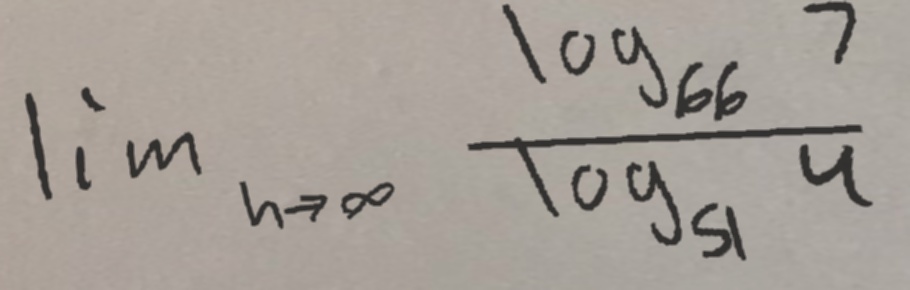 lim h→∞ log66 7
log51 4